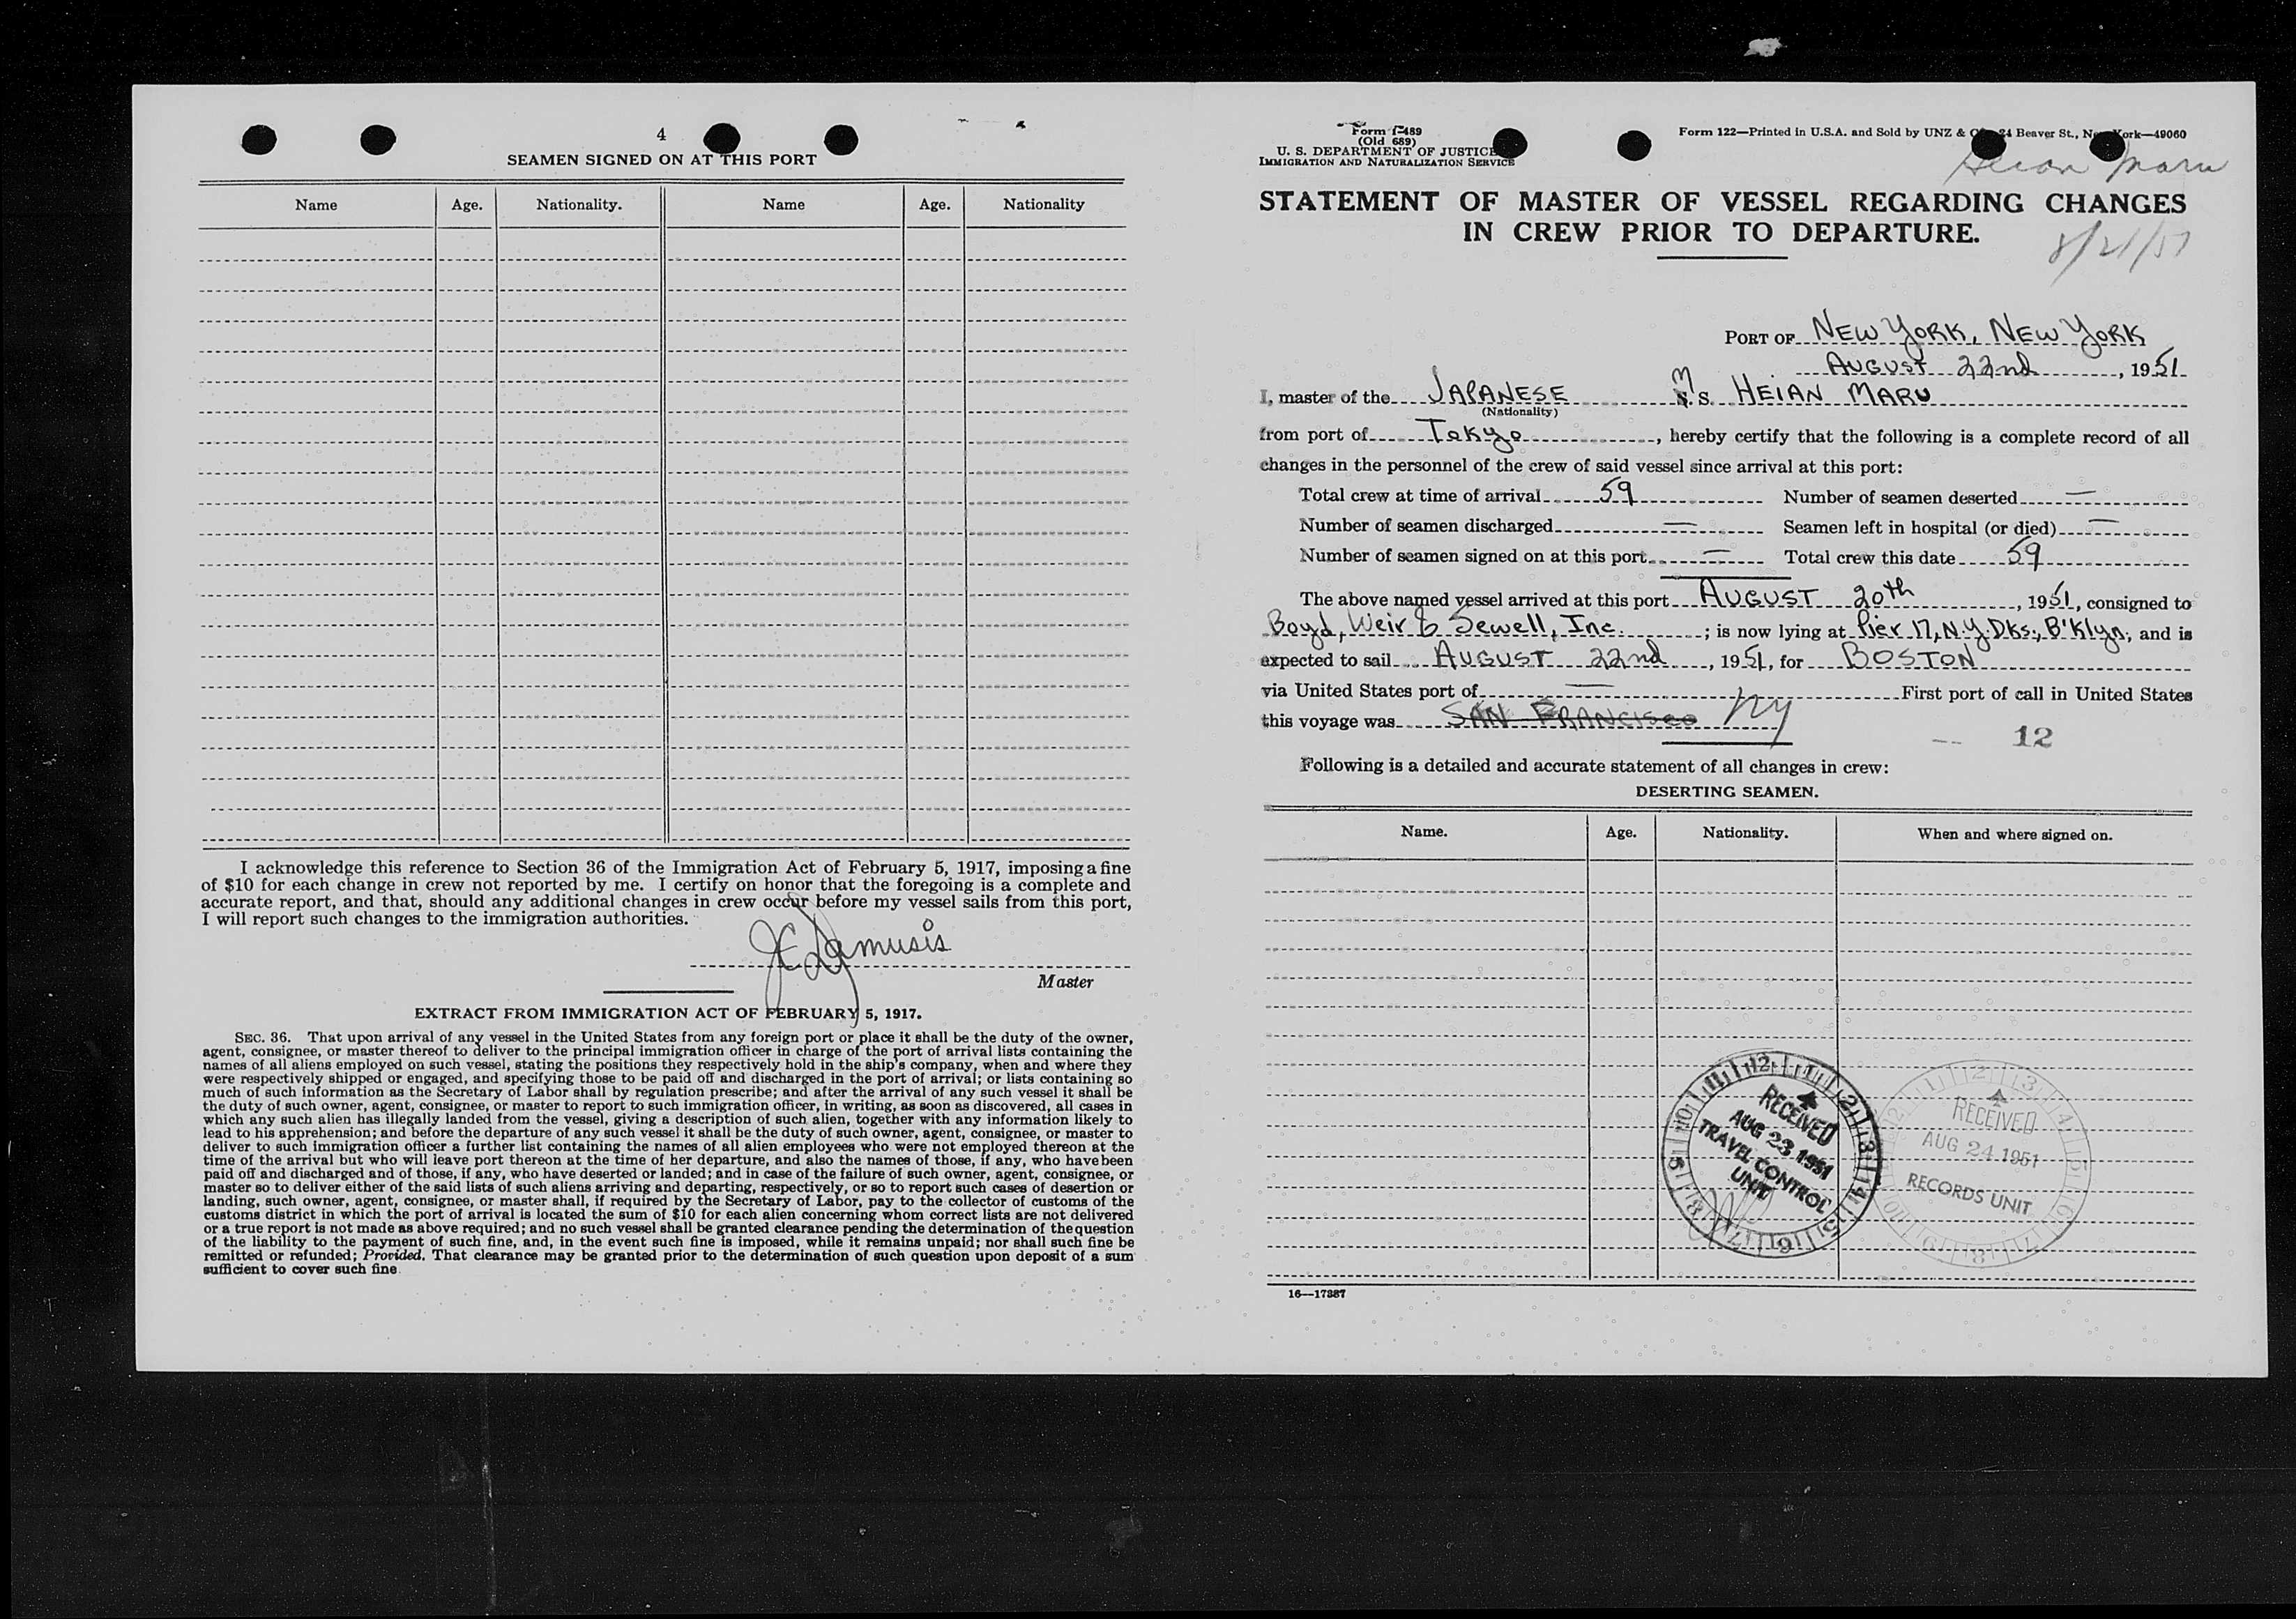 4
SEAMEN SIGNED ON AT THIS PORT
Name Age. Nationality. Name Age. Nationality
I acknowledge this reference to Section 36 of the Immigration Act of February 5, 1917, imposing a fine
of $10 for each change in crew not reported by me. I certify on honor that the foregoing is a complete and
accurate report, and that, should any additional changes in crew occur before my vessel sails from this port,
I will report such changes to the immigration authorities.
Master
EXTRACT FROM IMMIGRATION ACT OF FEBRUARY 5, 1917.
SEC. 36. That upon arrival of any vessel in the United States from any foreign port or place it shall be the duty of the owner,
agent, consignee, or master thereof to deliver to the principal immigration officer in charge of the port of arrival lists containing the
names of all aliens employed on such vessel, stating the positions they respectively hold in the ship's company, when and where they
were respectively shipped or engaged, and specifying those to be paid off and discharged in the port of arrival; or lists containing so
much of such information as the Secretary of Labor shall by regulation prescribe; and after the arrival of any such vessel it shall be
the duty of such owner, agent, consignee, or master to report to such immigration officer, in writing, as soon as discovered, all cases in
which any such alien has illegally landed from the vessel, giving a description of such alien, together with any information likely to
lead to his apprehension; and before the departure of any such vessel it shall be the duty of such owner, agent, consignee, or master to
deliver to such immigration officer a further list containing the names of all alien employees who were not employed thereon at the
time of the arrival but who will leave port thereon at the time of her departure, and also the names of those, if any, who have been
paid off and discharged and of those, if any, who have deserted or landed; and in case of the failure of such owner, agent, consignee, or
master so to deliver either of the said lists of such aliens arriving and departing, respectively, or so to report such cases of desertion or
landing, such owner, agent, consignee, or master shall, if required by the Secretary of Labor, pay to the collector of customs of the
customs district in which the port of arrival is located the sum of $10 for each alien concerning whom correct lists are not delivered
or a true report is not made as above required; and no such vessel shall be granted clearance pending the determination of the question
of the liability to the payment of such fine, and, in the event such fine is imposed, while it remains unpaid; nor shall such fine be
remitted or refunded; Provided, That clearance may be granted prior to the determination of such question upon deposit of a sum
sufficient to cover such fine
Form I-489
(Old 689)
U. S. DEPARTMENT OF JUSTICE
IMMIGRATION AND NATURALIZATION SERVICE
Form 122—Printed in U.S.A. and Sold by UNZ & 24 Beaver St., New York—49060
Heian Maru
STATEMENT OF MASTER OF VESSEL REGARDING CHANGES
IN CREW PRIOR TO DEPARTURE.
8/21/51
PORT OF NEW YORK, NEW YORK
AUGUST 22nd, 1951
I, master of the JAPANESE M S. HEIAN MARU
(Nationality)
from port of Tokyo, hereby certify that the following is a complete record of all
changes in the personnel of the crew of said vessel since arrival at this port:
Total crew at time of arrival 59 Number of seamen deserted —
Number of seamen discharged — Seamen left in hospital (or died) —
Number of seamen signed on at this port — Total crew this date 59
The above named vessel arrived at this port AUGUST 20th, 1951, consigned to
Boyd, Weir & Sewell, Inc.; is now lying at Pier 17, N.Y. Dks., B'Klyn, and is
expected to sail AUGUST 22nd, 1951, for BOSTON
via United States port of — First port of call in United States
this voyage was SAN FRANCISCO NY
12
Following is a detailed and accurate statement of all changes in crew:
DESERTING SEAMEN.
Name. Age. Nationality. When and where signed on.
RECEIVED
AUG 23 1951
TRAVEL CONTROL
UNIT
RECEIVED
AUG 24 1951
RECORDS UNIT
16—17387